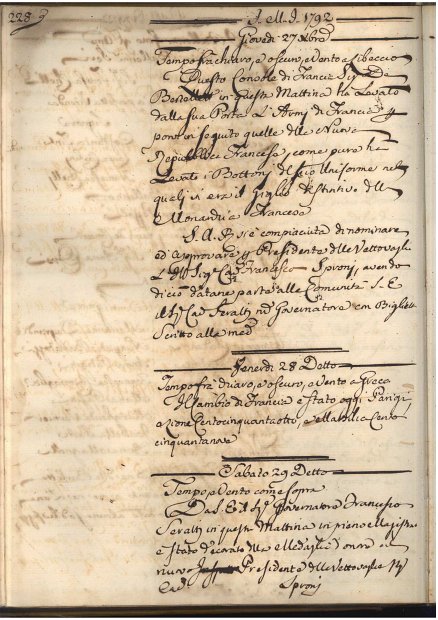 228
1792
Giovedi 27
Tempo fra chiaro, e oscuro, e Vento a libeccio
Questo Console di Francia Sig.
in questa Mattina ha Levato
dalla sua Porta L'Armi di Francia
in seguito quelle della Nuova
Repubblica Francese, come pure ha
Levati i Bottoni del suo Uniforme nei
quali vi era il Giglio distintivo della
Monarchia Francese
S. A. R. si è compiaciuta di nominare
ed approvare Presidente delle Vettovaglie
Francesco Sproni, avendo
di ciò data parte alla Comunità S. E.
il Seratti Governatore con Biglietto
Scritto alla med
Venerdi 28 Detto
Tempo fra chiaro, e oscuro, e Vento a Greco
Il Cambio di Francia è stato oggi Parigi
Centocinquantaotto, e Marsilia Cento
cinquantanove
Sabato 29 Detto
Tempo e Vento come sopra
Dal Governatore Francesco
Seratti in questa Mattina in pieno
è stato decorato della Medaglia d'onore
nuovo Presidente delle Vettovaglie
Sproni